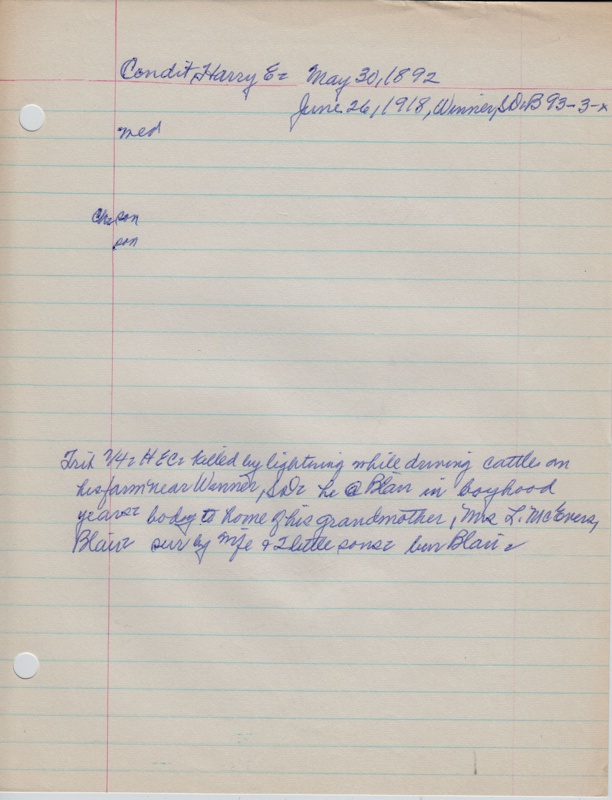 Condit, Harry E= May 30, 1892
June 26, 1918, Winner, SD= B 93-3-x
med
Ch= son
son
Trib 7/4= HEC= killed by lightning while driving cattle on
his farm near Winner, SD= Li @ Blair in boyhood
years= body to home of his grandmother, Mrs L. McEvers,
Blair= sur by wfe & 2 little sons= bur Blair=